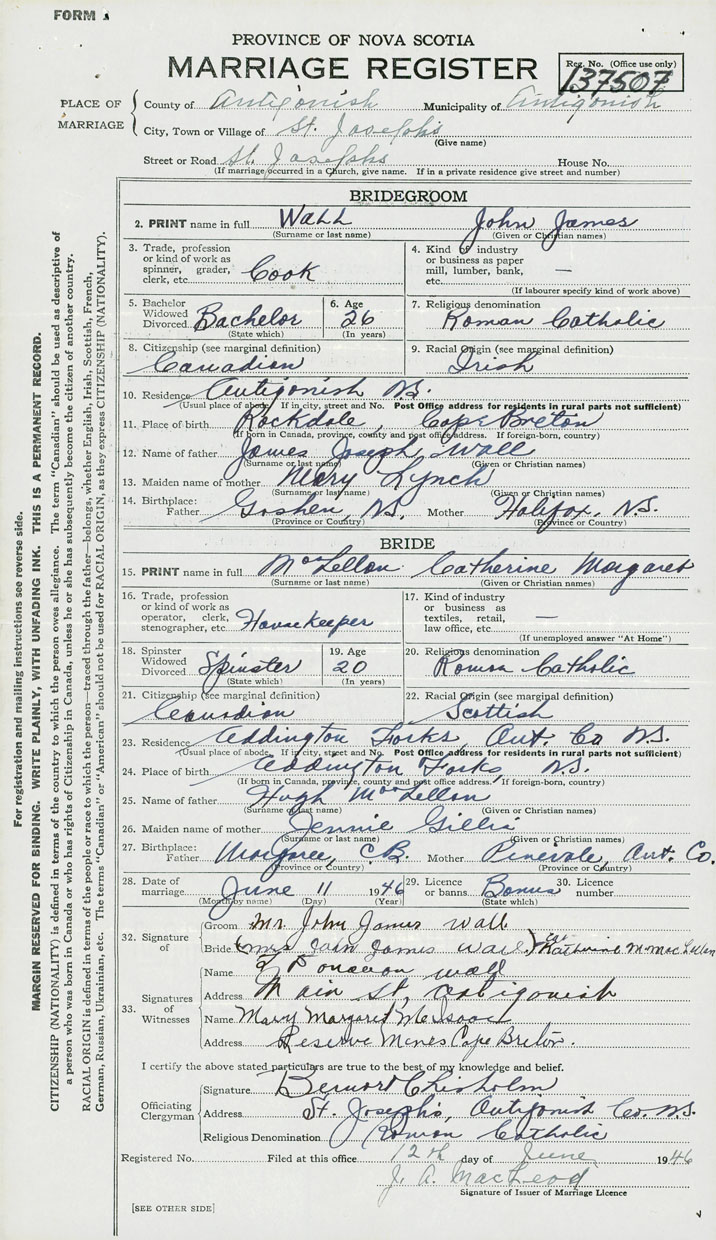 FORM A
PROVINCE OF NOVA SCOTIA
MARRIAGE REGISTER
Reg. No. (Office use only)
137507
PLACE OF MARRIAGE
County of Antigonish Municipality of Antigonish
City, Town or Village of St. Josephs
(Give name)
Street or Road St. Josephs House No.
(If marriage occurred in a Church, give name. If in a private residence give street and number)
BRIDEGROOM
2. PRINT name in full Wall John James
(Surname or last name) (Given or Christian names)
3. Trade, profession or kind of work as spinner, grader, clerk, etc. Cook
4. Kind of industry or business as paper mill, lumber, bank, etc. —
(If labourer specify kind of work above)
5. Bachelor Widowed Divorced Bachelor
(State which)
6. Age 26
(In years)
7. Religious denomination
Roman Catholic
8. Citizenship (see marginal definition)
Canadian
9. Racial Origin (see marginal definition)
Irish
10. Residence Antigonish N.S.
(Usual place of abode. If in city, street and No. Post Office address for residents in rural parts not sufficient)
11. Place of birth Rockdale, Cape Breton
(If born in Canada, province, county and post office address. If foreign-born, country)
12. Name of father James Joseph Wall
(Surname or last name) (Given or Christian names)
13. Maiden name of mother Mary Lynch
(Surname or last name) (Given or Christian names)
14. Birthplace: Father Goshen, N.S. Mother Halifax, N.S.
(Province or Country) (Province or Country)
BRIDE
15. PRINT name in full MacLellan Catherine Margaret
(Surname or last name) (Given or Christian names)
16. Trade, profession or kind of work as operator, clerk, stenographer, etc. Housekeeper
17. Kind of industry or business as textiles, retail, law office, etc. —
(If unemployed answer "At Home")
18. Spinster Widowed Divorced Spinster
(State which)
19. Age 20
(In years)
20. Religious denomination
Roman Catholic
21. Citizenship (see marginal definition)
Canadian
22. Racial Origin (see marginal definition)
Scottish
23. Residence Addington Forks, Ant. Co N.S.
(Usual place of abode. If in city, street and No. Post Office address for residents in rural parts not sufficient)
24. Place of birth Addington Forks, N.S.
(If born in Canada, province, county and post office address. If foreign-born, country)
25. Name of father Hugh MacLellan
(Surname or last name) (Given or Christian names)
26. Maiden name of mother Jennie Gillis
(Surname or last name) (Given or Christian names)
27. Birthplace: Father Margaree, C.B. Mother Pinevale, Ant. Co.
(Province or Country) (Province or Country)
28. Date of marriage June 11 1946
(Month by name) (Day) (Year)
29. Licence or banns Banns
(State which)
30. Licence number
32. Signature of
Groom Mr. John James Wall
Bride (Mrs John James Wall) Katherine M. MacLellan
33. Signatures of Witnesses
Name Donavon Wall
Address Main St, Antigonish
Name Mary Margaret McIsaac
Address Reserve Mines Cape Breton.
I certify the above stated particulars are true to the best of my knowledge and belief.
Officiating Clergyman
Signature Bernard Chisholm
Address St. Joseph's, Antigonish Co. N.S.
Religious Denomination Roman Catholic
Registered No. Filed at this office 12th day of June 1946
J. A. MacLeod
Signature of Issuer of Marriage Licence
[SEE OTHER SIDE]
For registration and mailing instructions see reverse side.
MARGIN RESERVED FOR BINDING. WRITE PLAINLY, WITH UNFADING INK. THIS IS A PERMANENT RECORD.
CITIZENSHIP (NATIONALITY) is defined in terms of the country to which the person owes allegiance. The term "Canadian" should be used as descriptive of
a person who was born in Canada or who has rights of Citizenship in Canada, unless he or she has subsequently become the citizen of another country.
RACIAL ORIGIN is defined in terms of the people or race to which the person—traced through the father—belongs, whether English, Irish, Scottish, French,
German, Russian, Ukrainian, etc. The terms "Canadian" or "American" should not be used for RACIAL ORIGIN, as they express CITIZENSHIP (NATIONALITY).